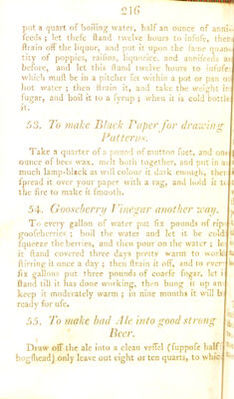 216
put a quart of boiling water, half an ounce of
feeds; let these stand twelve hours to infuse, then
strain off the liquor, and put it upon the same quan-
tity of poppies, raisins, liquorice, and anniseeds as
before, and let this stand twelve hours to infuse,
which must be in a pitcher set within a pot or pan
hot water; then strain it, and take the weight in
sugar, and boil it to a syrup; when it is cold bottle
it.
53. To make Black Paper for drawing
Patterns.
Take a quarter of a pound of mutton suet, and one
ounce of bees wax, melt both together, and put in as
much lamp-black as will colour it dark enough, then
spread it over your paper with a rag, and hold it to
the fire to make it smooth.
54. Gooseberry Vinegar another way.
To every gallon of water put six pounds of ripe
gooseberries; boil the water and let it be cold,
squeeze the berries, and then pour on the water; let
it stand covered three days pretty warm to work,
stirring it once a day; then strain it off, and to every
six gallons put three pounds of coarse sugar, let it
stand till it has done working, then bung it up and
keep it moderately warm; in nine months it will be
ready for use.
55. To make bad Ale into good strong
Beer.
Draw off the ale into a clean vessel (suppose half
hogshead) only leave out eight or ten quarts, to which